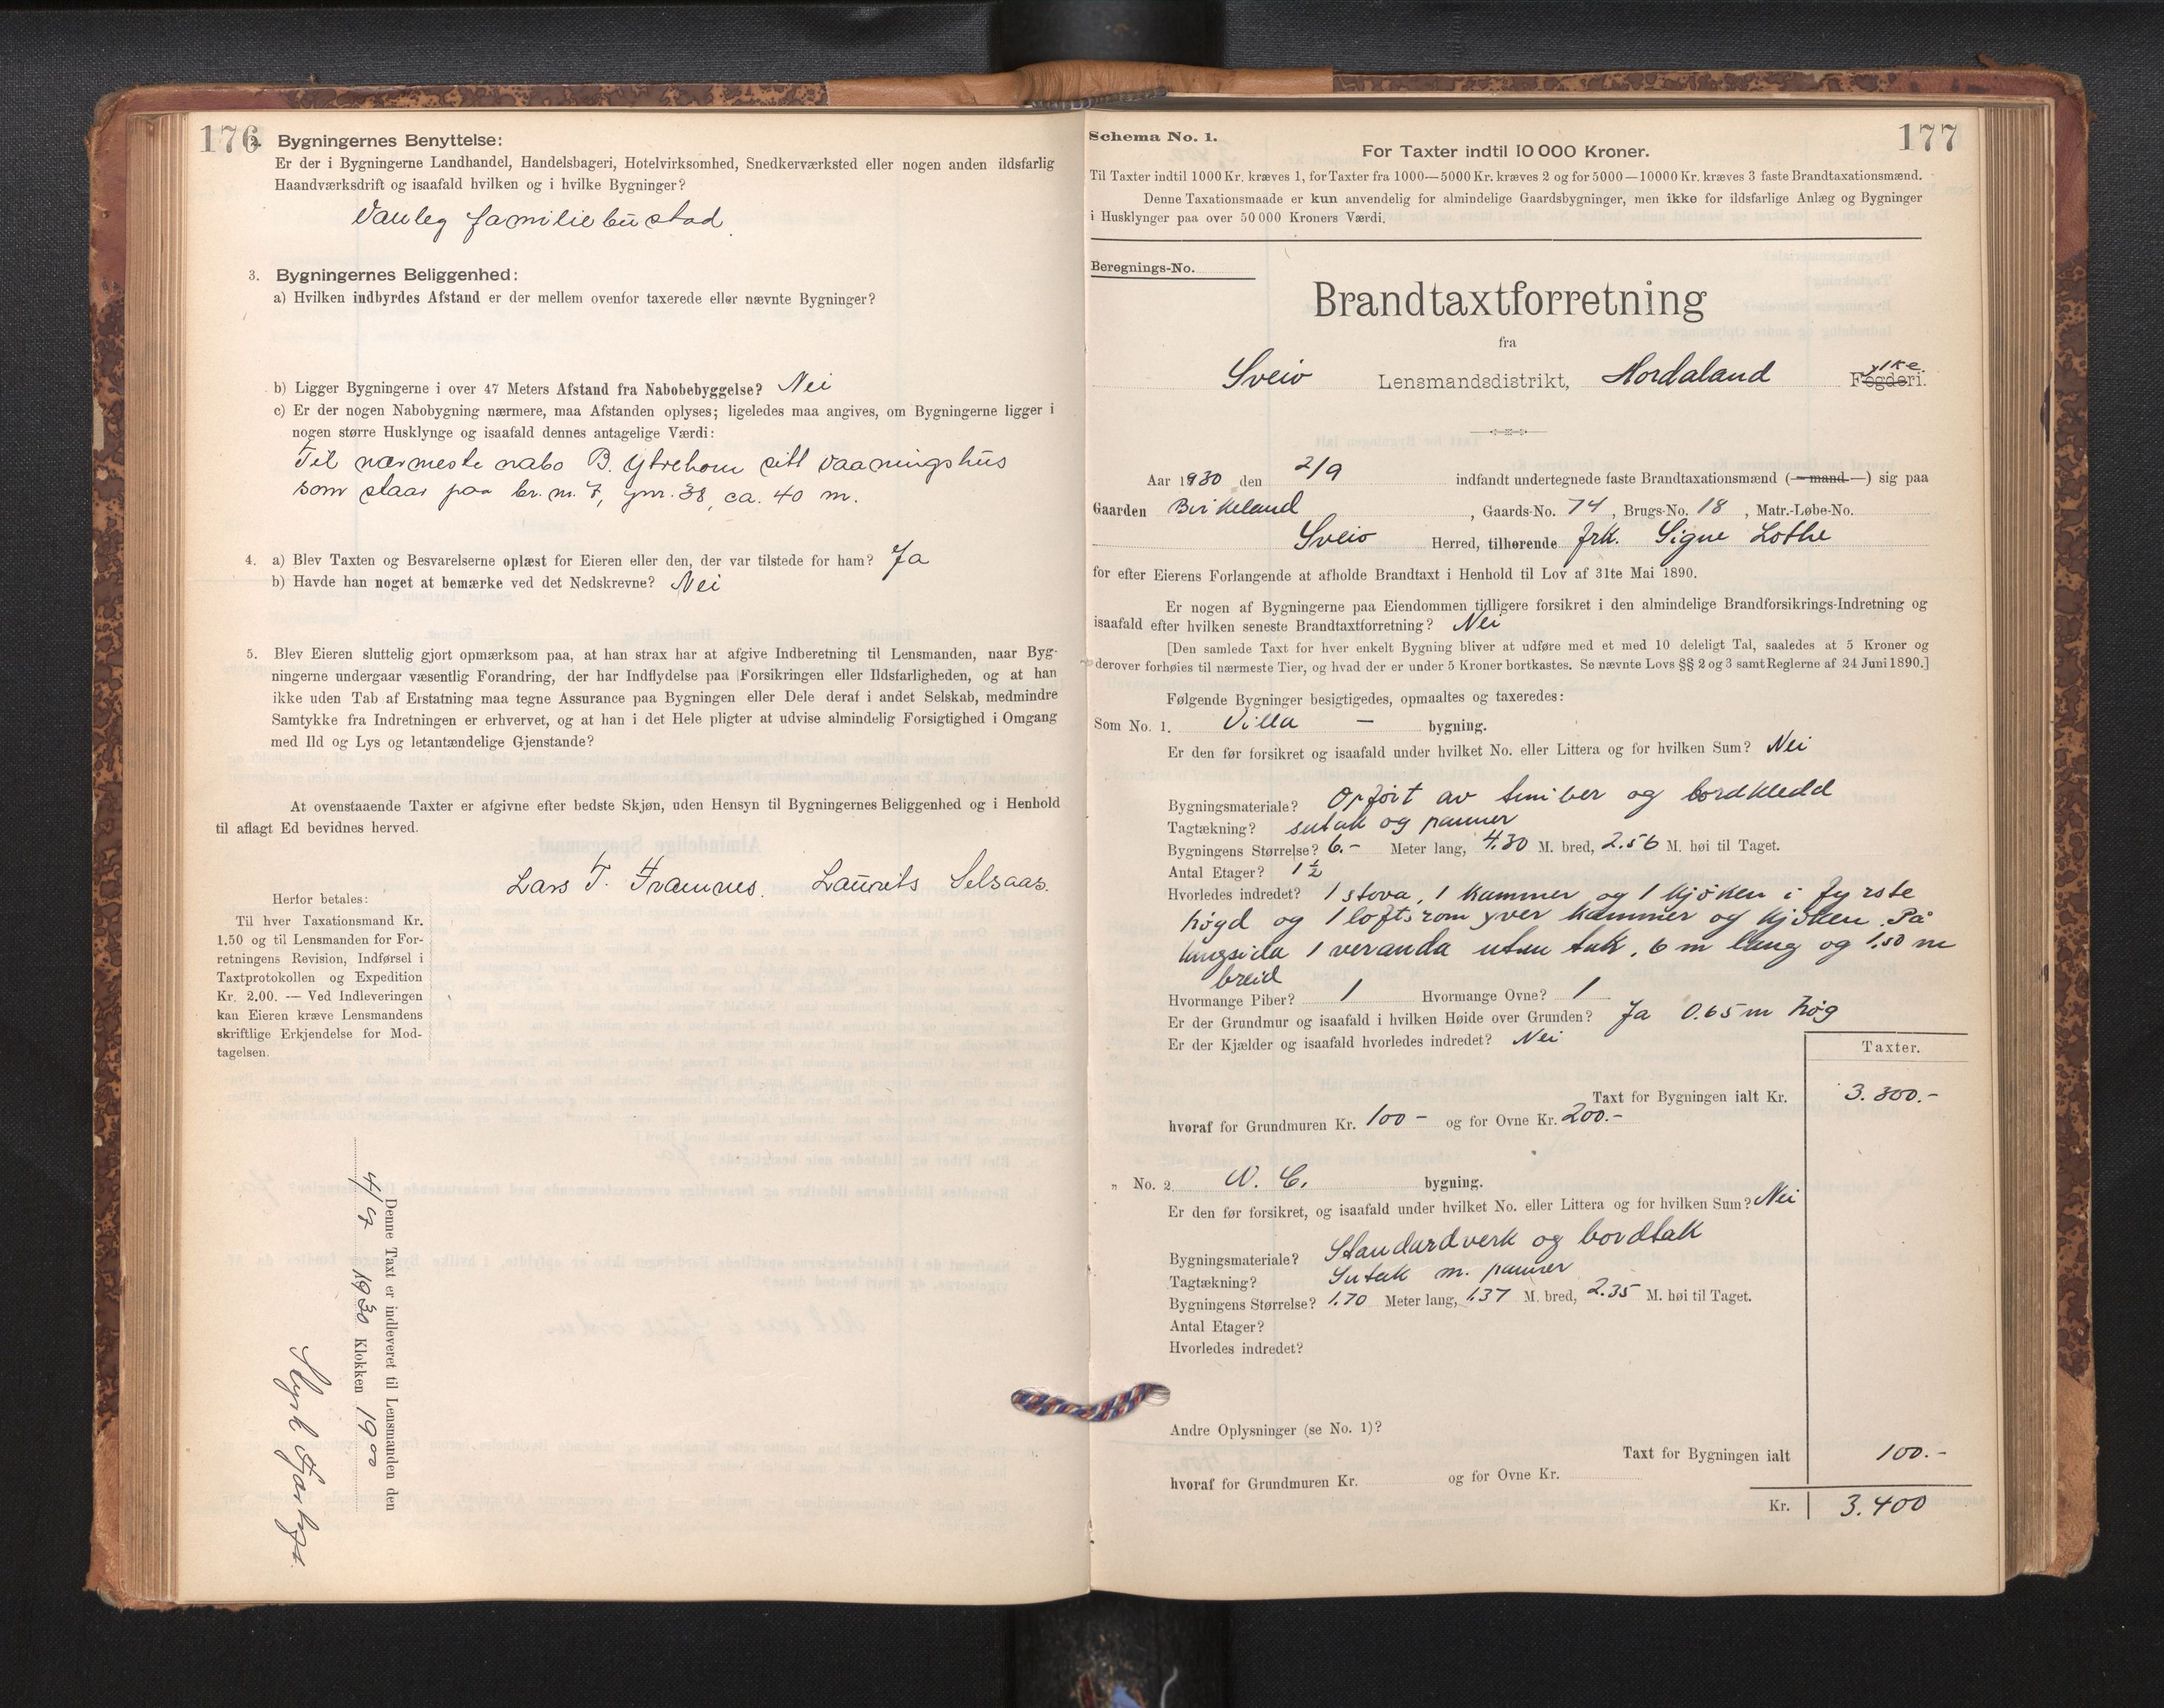 176
2. Bygningernes Benyttelse:
Er der i Bygningerne Landhandel, Handelsbageri, Hotelvirksomhed, Snedkerværksted eller nogen anden ildsfarlig
Haandværksdrift og isaafald hvilken og i hvilke Bygninger?
Vanleg familiebustad.
3. Bygningernes Beliggenhed:
a) Hvilken indbyrdes Afstand er der mellem ovenfor taxerede eller nævnte Bygninger?
b) Ligger Bygningerne i over 47 Meters Afstand fra Nabobebyggelse? Nei
c) Er der nogen Nabobygning nærmere, maa Afstanden oplyses; ligeledes maa angives, om Bygningerne ligger i
nogen større Husklynge og isaafald dennes antagelige Værdi:
Til nærmeste nabo B. Ytrehorn sitt vaaningshus
som staar paa br. nr. 7, gnr. 38, ca. 40 m.
4. a) Blev Taxten og Besvarelserne oplæst for Eieren eller den, der var tilstede for ham? Ja
b) Havde han noget at bemærke ved det Nedskrevne? Nei
5. Blev Eieren sluttelig gjort opmærksom paa, at han strax har at afgive Indberetning til Lensmanden, naar Byg-
ningerne undergaar væsentlig Forandring, der har Indflydelse paa Forsikringen eller Ildsfarligheden, og at han
ikke uden Tab af Erstatning maa tegne Assurance paa Bygningen eller Dele deraf i andet Selskab, medmindre
Samtykke fra Indretningen er erhvervet, og at han i det Hele pligter at udvise almindelig Forsigtighed i Omgang
med Ild og Lys og letantændelige Gjenstande?
At ovenstaaende Taxter er afgivne efter bedste Skjøn, uden Hensyn til Bygningernes Beliggenhed og i Henhold
til aflagt Ed bevidnes herved.
Lars T. Framnes. Laurits Selsaas.
Herfor betales:
Til hver Taxationsmand Kr.
1.50 og til Lensmanden for For-
retningens Revision, Indførsel i
Taxtprotokollen og Expedition
Kr. 2.00. — Ved Indleveringen
kan Eieren kræve Lensmandens
skriftlige Erkjendelse for Mod-
tagelsen.
Denne Taxt er indleveret til Lensmanden den
4/9 1930 Klokken 19 00
177
Schema No. 1.
For Taxter indtil 10 000 Kroner.
Til Taxter indtil 1000 Kr. kræves 1, for Taxter fra 1000—5000 Kr. kræves 2 og for 5000—10000 Kr. kræves 3 faste Brandtaxationsmænd.
Denne Taxationsmaade er kun anvendelig for almindelige Gaardsbygninger, men ikke for ildsfarlige Anlæg og Bygninger
i Husklynger paa over 50 000 Kroners Værdi.
Beregnings-No.
Brandtaxtforretning
fra
Sveio Lensmandsdistrikt, Hordaland Fogderi. ylke.
Aar 1930 den 2/9 indfandt undertegnede faste Brandtaxationsmænd (—mand—) sig paa
Gaarden Birkeland, Gaards-No. 74, Brugs-No. 18, Matr.-Løbe-No.
Sveio Herred, tilhørende frk. Signe Lothe
for efter Eierens Forlangende at afholde Brandtaxt i Henhold til Lov af 31te Mai 1890.
Er nogen af Bygningerne paa Eiendommen tidligere forsikret i den almindelige Brandforsikrings-Indretning og
isaafald efter hvilken seneste Brandtaxtforretning? Nei
[Den samlede Taxt for hver enkelt Bygning bliver at udføre med et med 10 deleligt Tal, saaledes at 5 Kroner og
derover forhøies til nærmeste Tier, og hvad der er under 5 Kroner bortkastes. Se nævnte Lovs §§ 2 og 3 samt Reglerne af 24 Juni 1890.]
Følgende Bygninger besigtigedes, opmaaltes og taxeredes:
Som No. 1. Villa — bygning.
Er den før forsikret og isaafald under hvilket No. eller Littera og for hvilken Sum? Nei
Bygningsmateriale? Opført av timber og bordkledd
Tagtækning? sutak og panner
Bygningens Størrelse? 6.- Meter lang, 4.30 M. bred, 2.56 M. høi til Taget.
Antal Etager? 1 1/2
Hvorledes indredet? 1 stova, 1 kammer og 1 kjøken i fyrste
høgd og 1 loftsrom yver kammer og kjøken. På
langsida 1 veranda uten tak, 6 m lang og 1,50 m
breid
Hvormange Piber? 1 Hvormange Ovne? 1
Er der Grundmur og isaafald i hvilken Høide over Grunden? Ja 0.65 m høg
Er der Kjælder og isaafald hvorledes indredet? Nei
Taxter.
Taxt for Bygningen ialt Kr. 3.300.-
hvoraf for Grundmuren Kr. 100- og for Ovne Kr. 200.-
„ No. 2 W. C. bygning.
Er den før forsikret, og isaafald under hvilket No. eller Littera og for hvilken Sum? Nei
Bygningsmateriale? Standardverk og bordtak
Tagtækning? Sutak m. panner
Bygningens Størrelse? 1.70 Meter lang, 1.37 M. bred, 2.35 M. høi til Taget.
Antal Etager?
Hvorledes indredet?
Andre Oplysninger (se No. 1)?
Taxt for Bygningen ialt 100.-
hvoraf for Grundmuren Kr. og for Ovne Kr.
Kr. 3.400